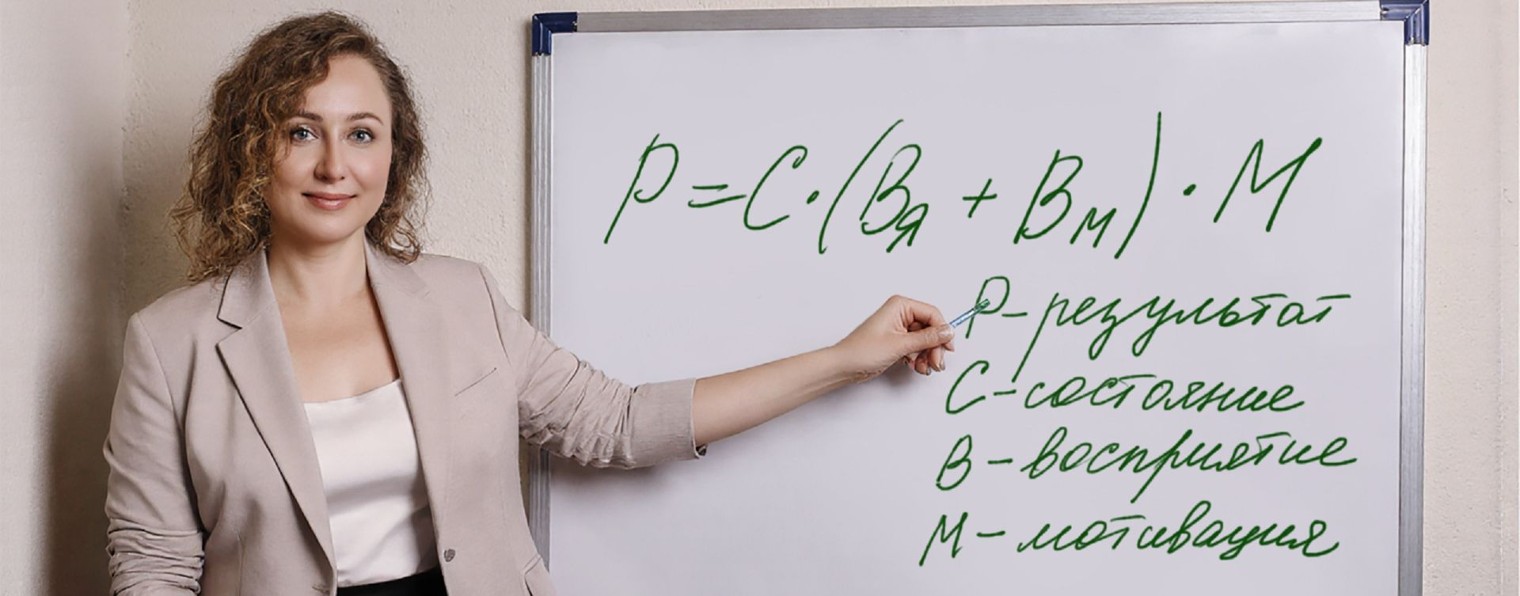 Р=С·(Вя + Вм)·М
Р-результат
С-состояние
В-восприятие
М-мотивация